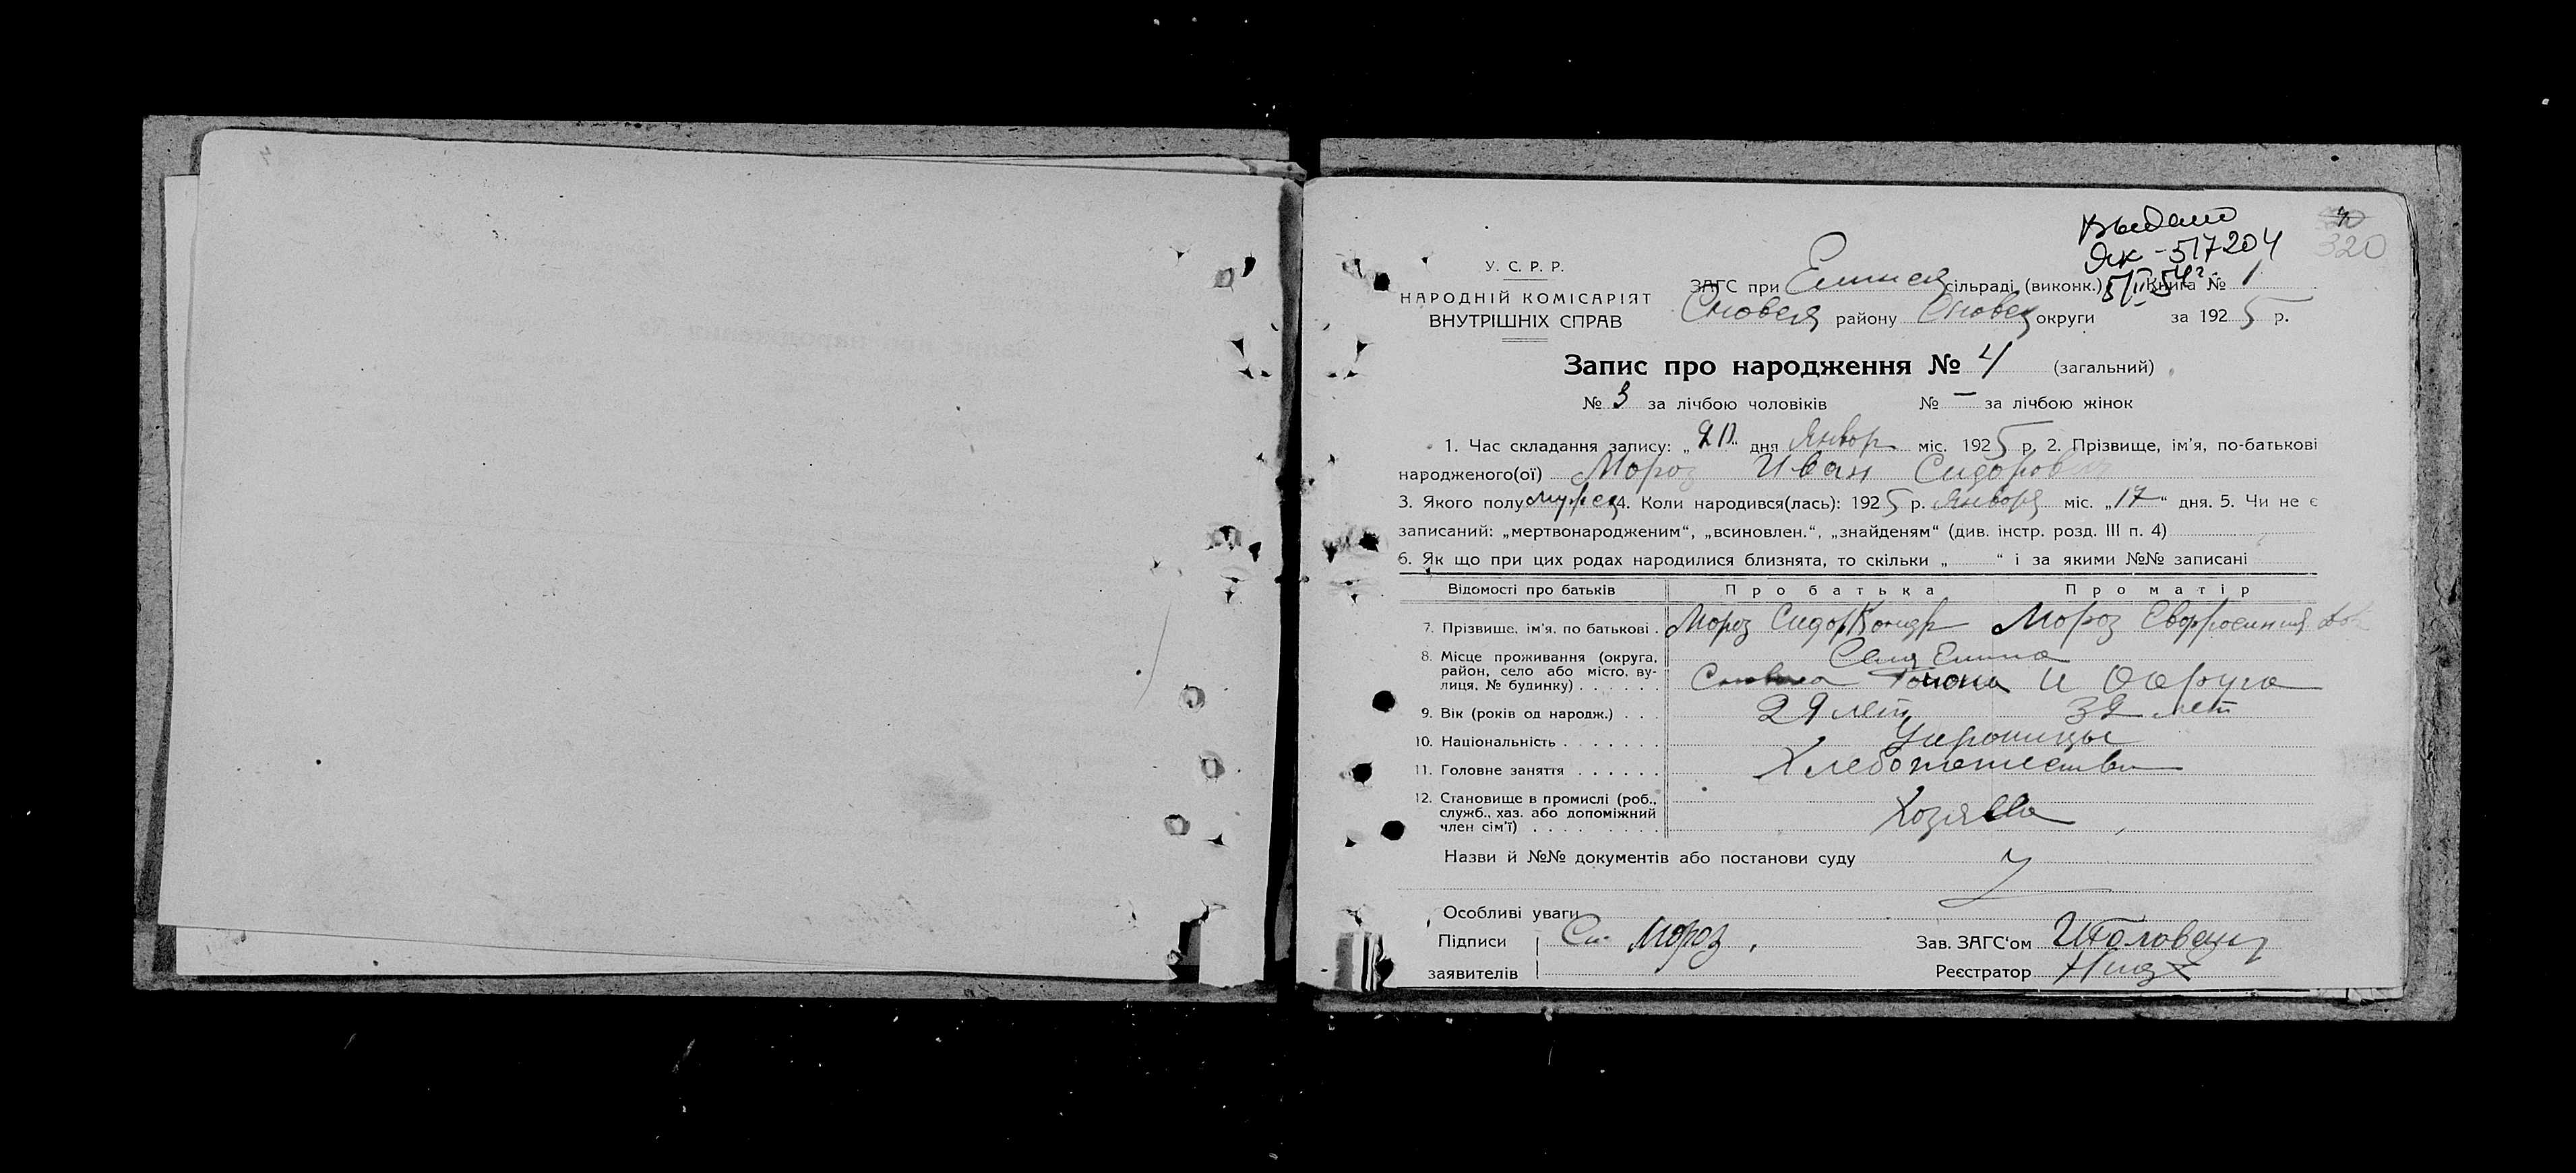 Выдано
320
У. С. Р. Р.
Як - 517204
ЗАГС при сільраді (виконк.) Книга № 1
НАРОДНІЙ КОМІСАРІЯТ
ВНУТРІШНІХ СПРАВ
району округи за 1925 р.
Запис про народження № 4 (загальний)
№ 3 за лічбою чоловіків № — за лічбою жінок
1. Час складання запису: „20“ дня Январ міс. 1925 р. 2. Прізвище, ім'я, по-батькові
народженого(ої) Мороз Иван Сидорович
3. Якого полу мужск 4. Коли народився(лась): 1925 р. Января міс. „17“ дня. 5. Чи не є
записаний: „мертвонародженим“, „всиновлен.“, „знайденям“ (див. інстр. розд. III п. 4)
6. Як що при цих родах народилися близнята, то скільки „ “ і за якими №№ записані
Відомості про батьків Про батька Про матір
7. Прізвище, ім'я, по батькові . Мороз Сидор Кондр Мороз
8. Місце проживання (округа,
район, село або місто, ву-
лиця, № будинку) . . . . . . района и Округа
9. Вік (років од народж.) . . . 29 лет 32 лет
10. Національність . . . . . . . Украинцы
11. Головне заняття . . . . . .
12. Становище в промислі (роб.,
служб., хаз. або допоміжний
член сім'ї) . . . . . . . . . Хозяева
Назви й №№ документів або постанови суду
Особливі уваги
Підписи Мороз Зав. ЗАГС'ом
заявителів Реєстратор